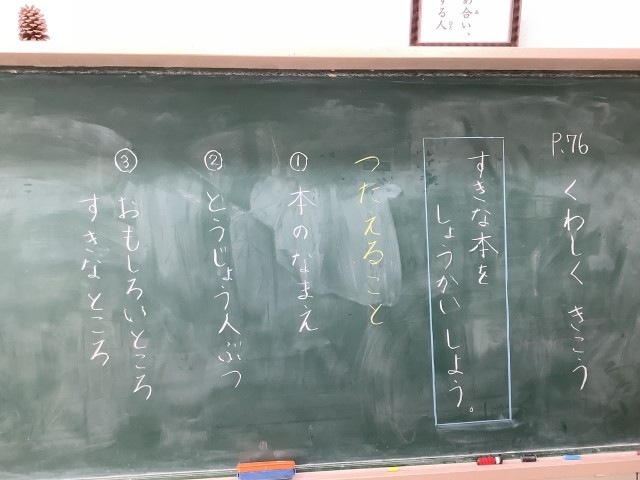 め合い、
する人
P.76
くわしく きこう
すきな本を
しょうかいしよう。
つたえること
① 本のなまえ
② とうじょう人ぶつ
③ おもしろいところ
すきなところ